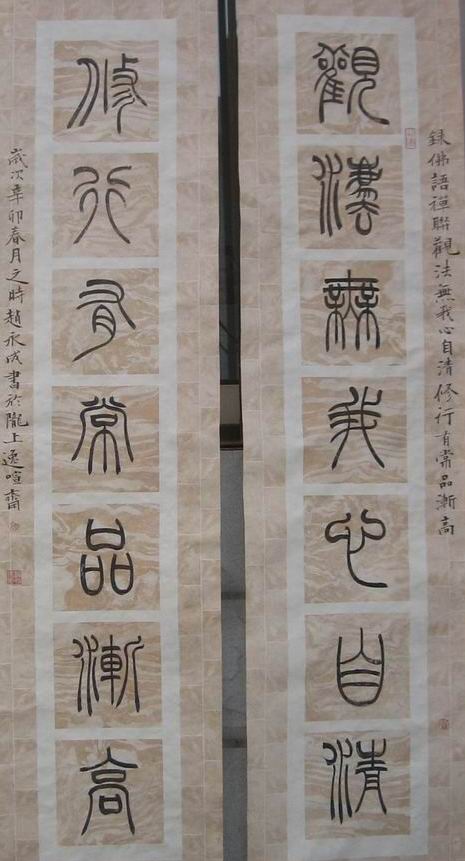 錄佛語禪聯觀法無我心自清修行有常品漸高
觀灋無我心自清
修行有常品漸高
歲次辛卯春月之時趙永成書於隴上逸喧齋